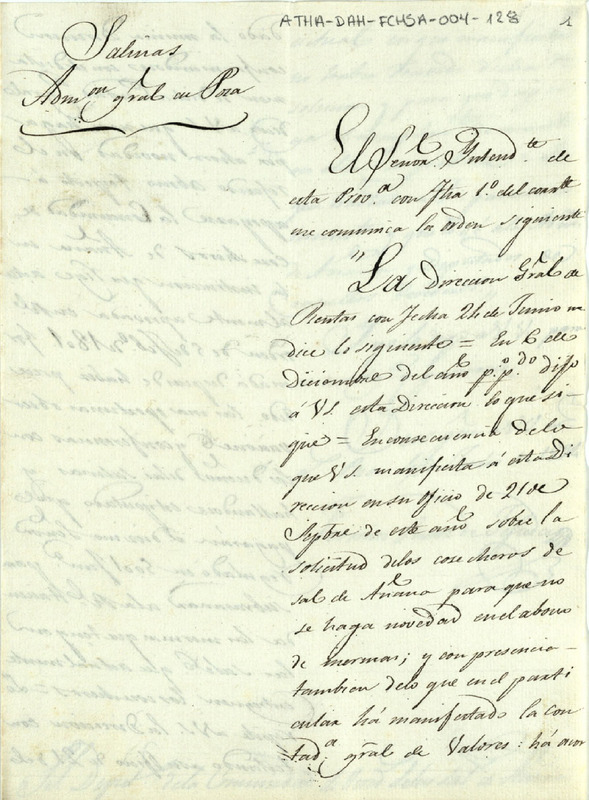 ATHA-DAH-FCHSA-004-128
1
Salinas
Admon gral en Poza
El Señor Intendte de
esta Prova con fha 1º del corrte
me comunica la orden siguiente
"La Direccion Gral de
Rentas con fecha 24 de Junio me
dice lo siguiente = En 6 de
Diciembre del año p.º p.do dijo
á V.S. esta Direccion lo que si-
gue = En consecuencia de lo
que V.S. manifiesta á esta Di
reccion en su oficio de 21 de
Septbre de este año sobre la
solicitud delos cosecheros de
sal de Añana para que no
se haga novedad en el abono
de mermas; y con presencia
tambien delo que en el parti
cular há manifestado la Con
tada gral de Valores: há acor